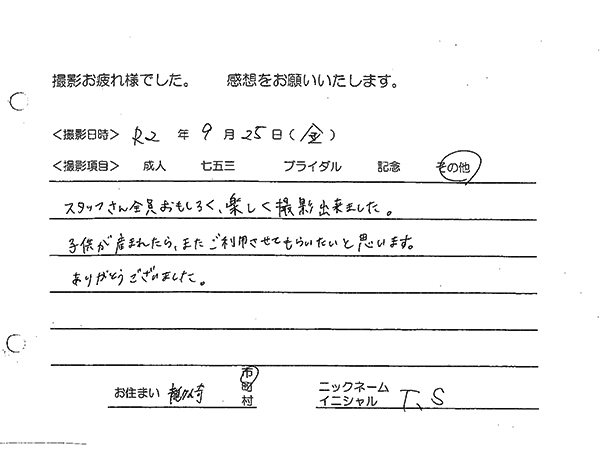 撮影お疲れ様でした。 感想をお願いいたします。
<撮影日時> R2 年 9 月 25 日(金)
<撮影項目> 成人 七五三 ブライダル 記念 その他
スタッフさん全員おもしろく、楽しく撮影出来ました。
子供が産まれたら、またご利用させてもらいたいと思います。
ありがとうございました。
お住まい 龍ヶ崎 市町村
ニックネーム
イニシャル T、S